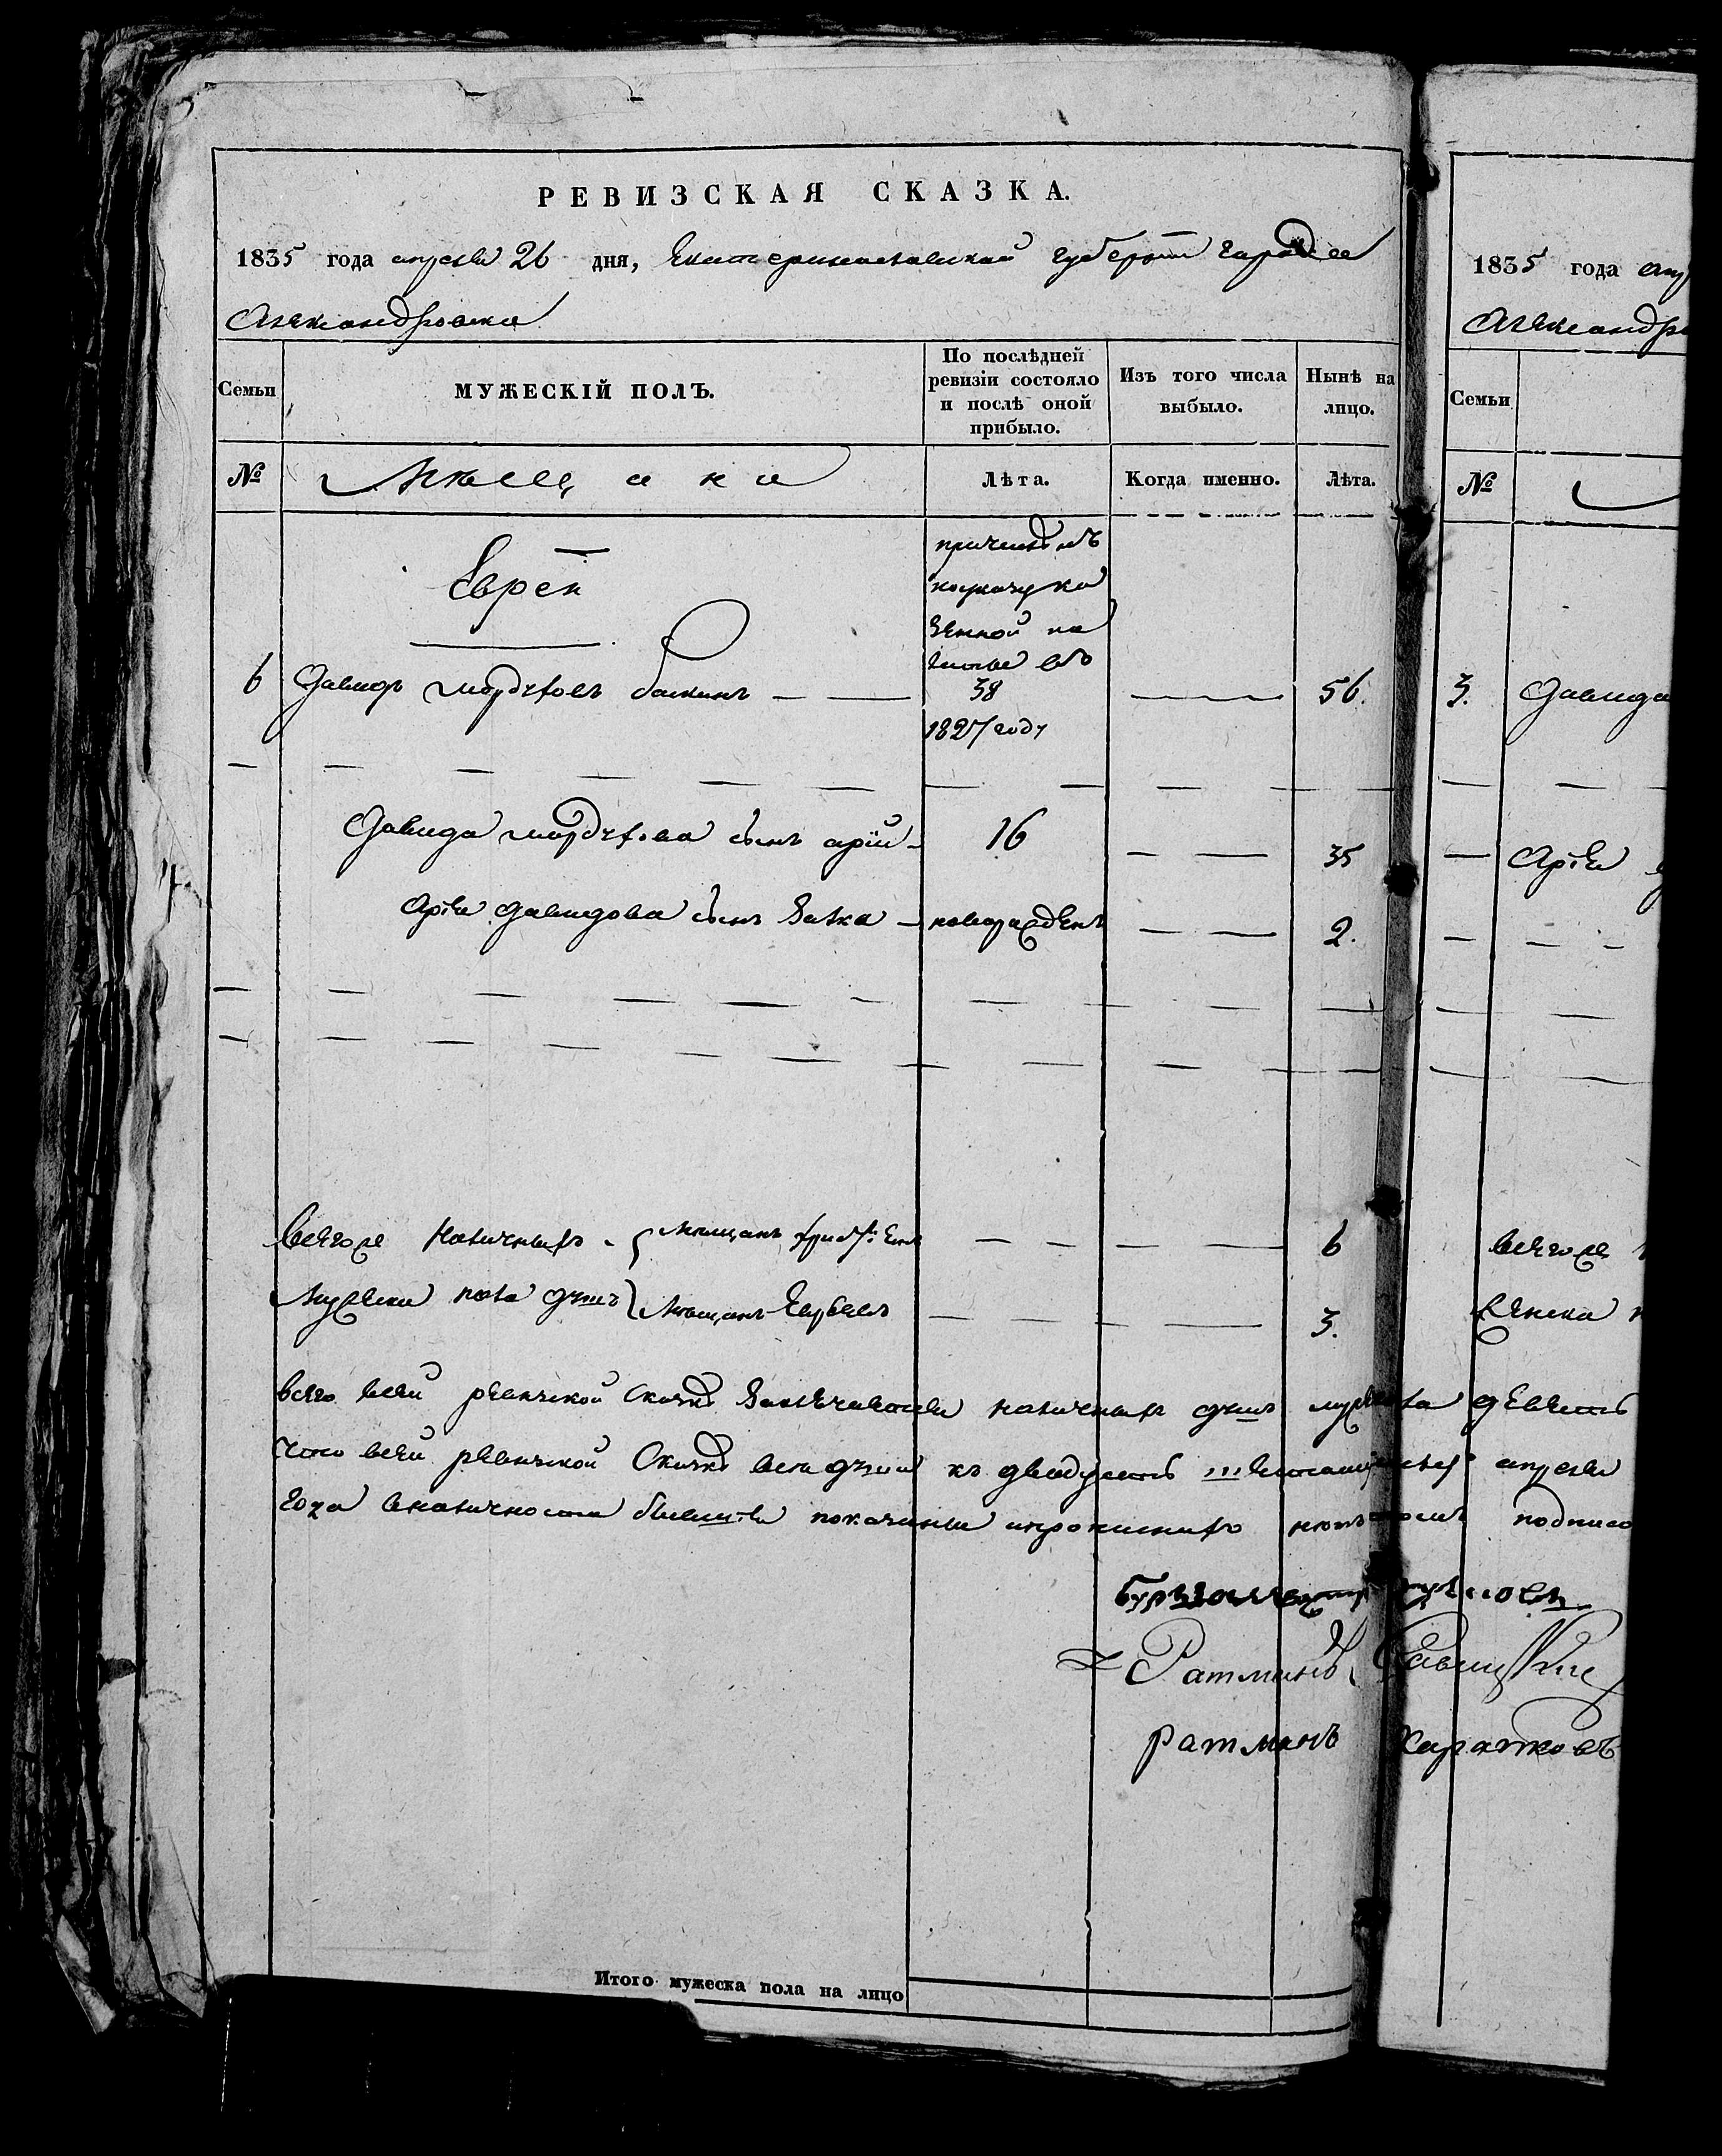 РЕВИЗСКАЯ СКАЗКА.
1835 года апреля 26 дня, Екатеринославской губернии города
Александровска
Семьи
МУЖЕСКІЙ ПОЛЪ.
По послѣдней ревизіи состояло и послѣ оной прибыло.
Изъ того числа выбыло.
Нынѣ на лицо.
№
Мѣщане
Лѣта.
Когда именно.
Лѣта.
Евреи
причисленъ
по указу ка
зенной па
латы въ
6 Давидъ Мордухов Баскинъ 38 56.
1827 году
Давида Мордухова сынъ Арій 16 35
Арія Давидова сынъ Залка новорожденъ 2.
Всего наличныхъ мѣщанъ христіанъ 6
мужеска пола душъ мѣщанъ Евреевъ 3.
всего в сей ревизской сказке наличныхъ душъ девять
что в сей ревизской сказке все души къ двадцать апреля
года в наличности показаны подписо
Ратманъ Савицкій
Ратманъ Харатковъ
Итого мужеска пола на лицо
1835 года апр
Александро
Семьи
№
3. Давида
Арія
всего
женска